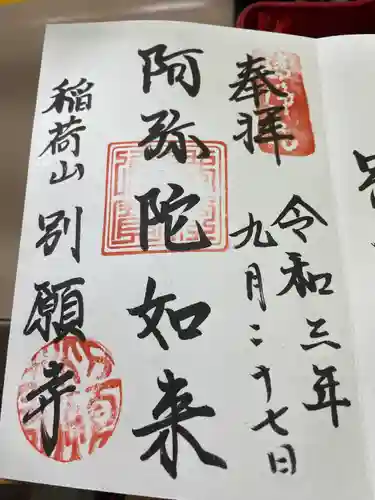 奉拝
令和三年
九月二十七日
阿弥陀如来
稲荷山 別願寺